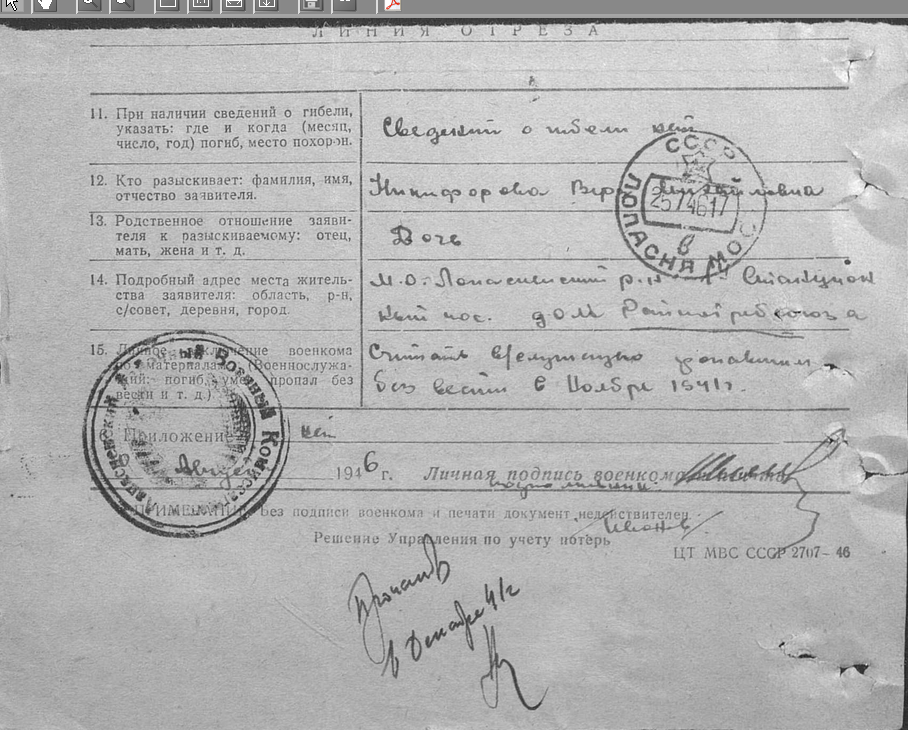 ЛИНИЯ ОТРЕЗА
11. При наличии сведений о гибели,
указать: где и когда (месяц,
число, год) погиб, место похорон.
Сведений о гибели нет
12. Кто разыскивает: фамилия, имя,
отчество заявителя.
Никифорова Вера Михайловна
13. Родственное отношение заяви-
теля к разыскиваемому: отец,
мать, жена и т. д.
Дочь
14. Подробный адрес места житель-
ства заявителя: область, р-н,
с/совет, деревня, город.
М.О. Лопасненский р-н Станцион
ный пос. дом Райпотребсоюза
15. Личное заключение военкома
по материалам (Военнослужа-
щий: погиб, умер, пропал без
вести и т. д.)
Считать в/служащего пропавшим
без вести в Ноябре 1941г.
СССР
ЛОПАСНЯ МОС.
25 7 46 17
в
Приложение нет
Август 1946 г. Личная подпись военкома
подполковник
ПРИМЕЧАНИЕ: Без подписи военкома и печати документ недействителен
/Иванов/
Решение Управления по учету потерь
ЦТ МВС СССР 2707-46
Лопасненский Районный Военный Комиссариат
Пропал
в Декабре 41г